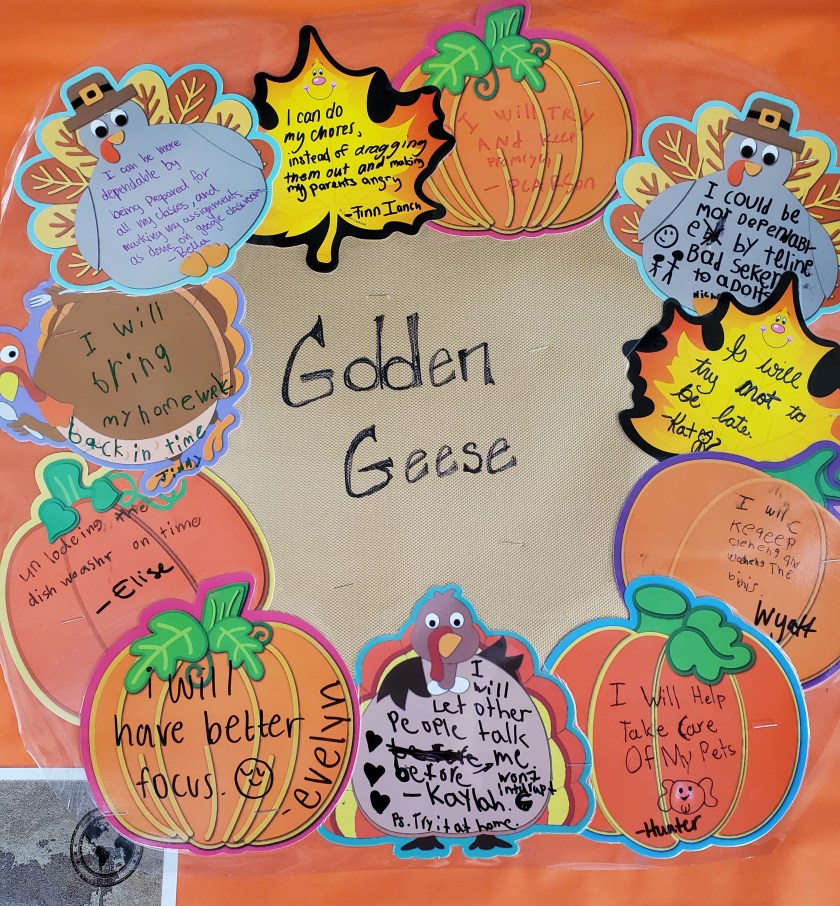 Golden
Geese
I can be more
dependable by
being prepared for
all my classes, and
marking my assignments
as done on google classroom
-Bella
I can do
my chores,
instead of dragging
them out and making
my parents angry
-Finn Ianch
I will TRY
AND keep
- PEARSON
I COULD BE
by teline
BAD
TO ADOLTS
I will
bring
my homework
back in time
Jimmy
Is will
try not to
be late.
un lodeing the
dish woashr on time
-Elise
I will
keqeep
The
Wyatt
i will
have better
focus.
-evelyn
I
will
Let other
people talk
before me
wont
intrupt
-Kaylah.
Ps. Try it at home.
I Will Help
Take Care
Of My Pets
-Hunter